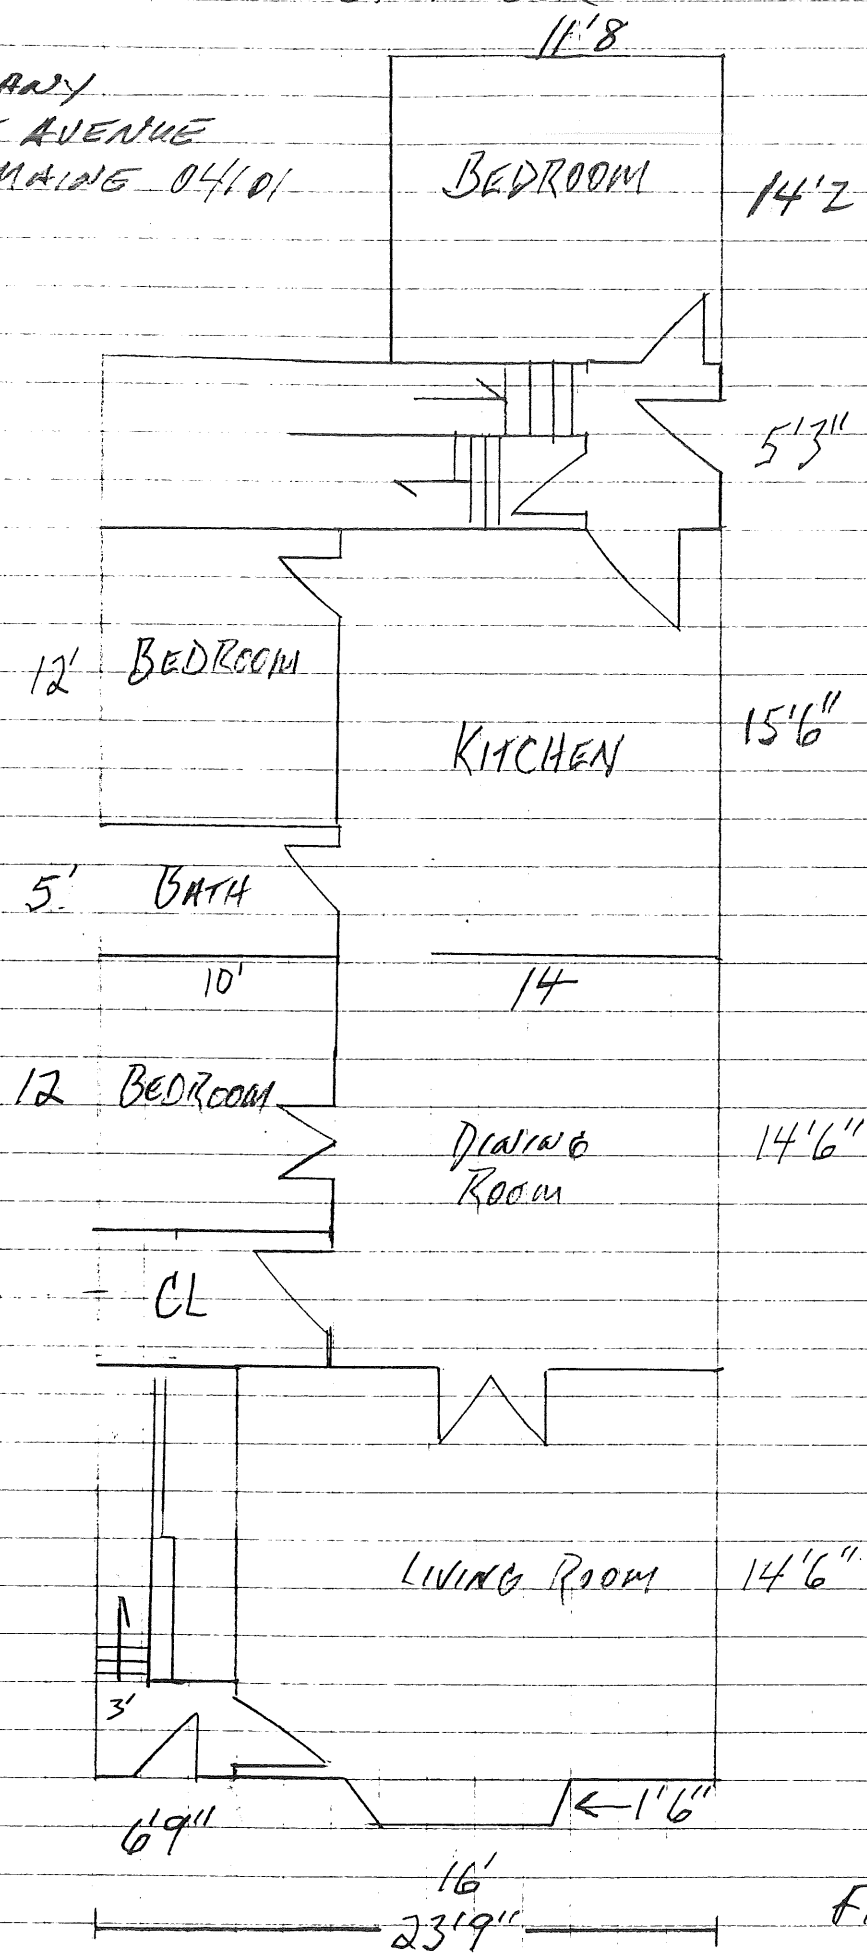 11'8
AVENUE
MAINE 04101
BEDROOM
14'2
5'3"
12'
BEDROOM
15'6"
KITCHEN
5'
BATH
10'
14
12
BEDROOM
DINING
ROOM
14'6"
CL
LIVING ROOM
14'6"
3'
1'6"
6'9"
16'
23'9"